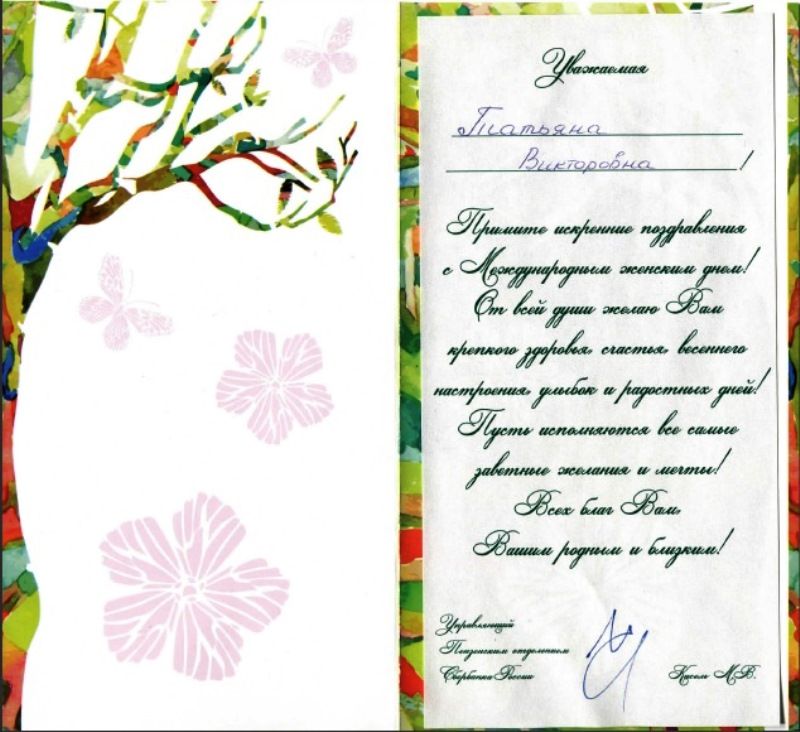 Уважаемая
Татьяна
Викторовна!
Примите искренние поздравления
с Международным женским днем!
От всей души желаю Вам
крепкого здоровья, счастья, весеннего
настроения, улыбок и радостных дней!
Пусть исполняются все самые
заветные желания и мечты!
Всех благ Вам,
Вашим родным и близким!
Управляющий
Пензенским отделением
Сбербанка России
М.В.